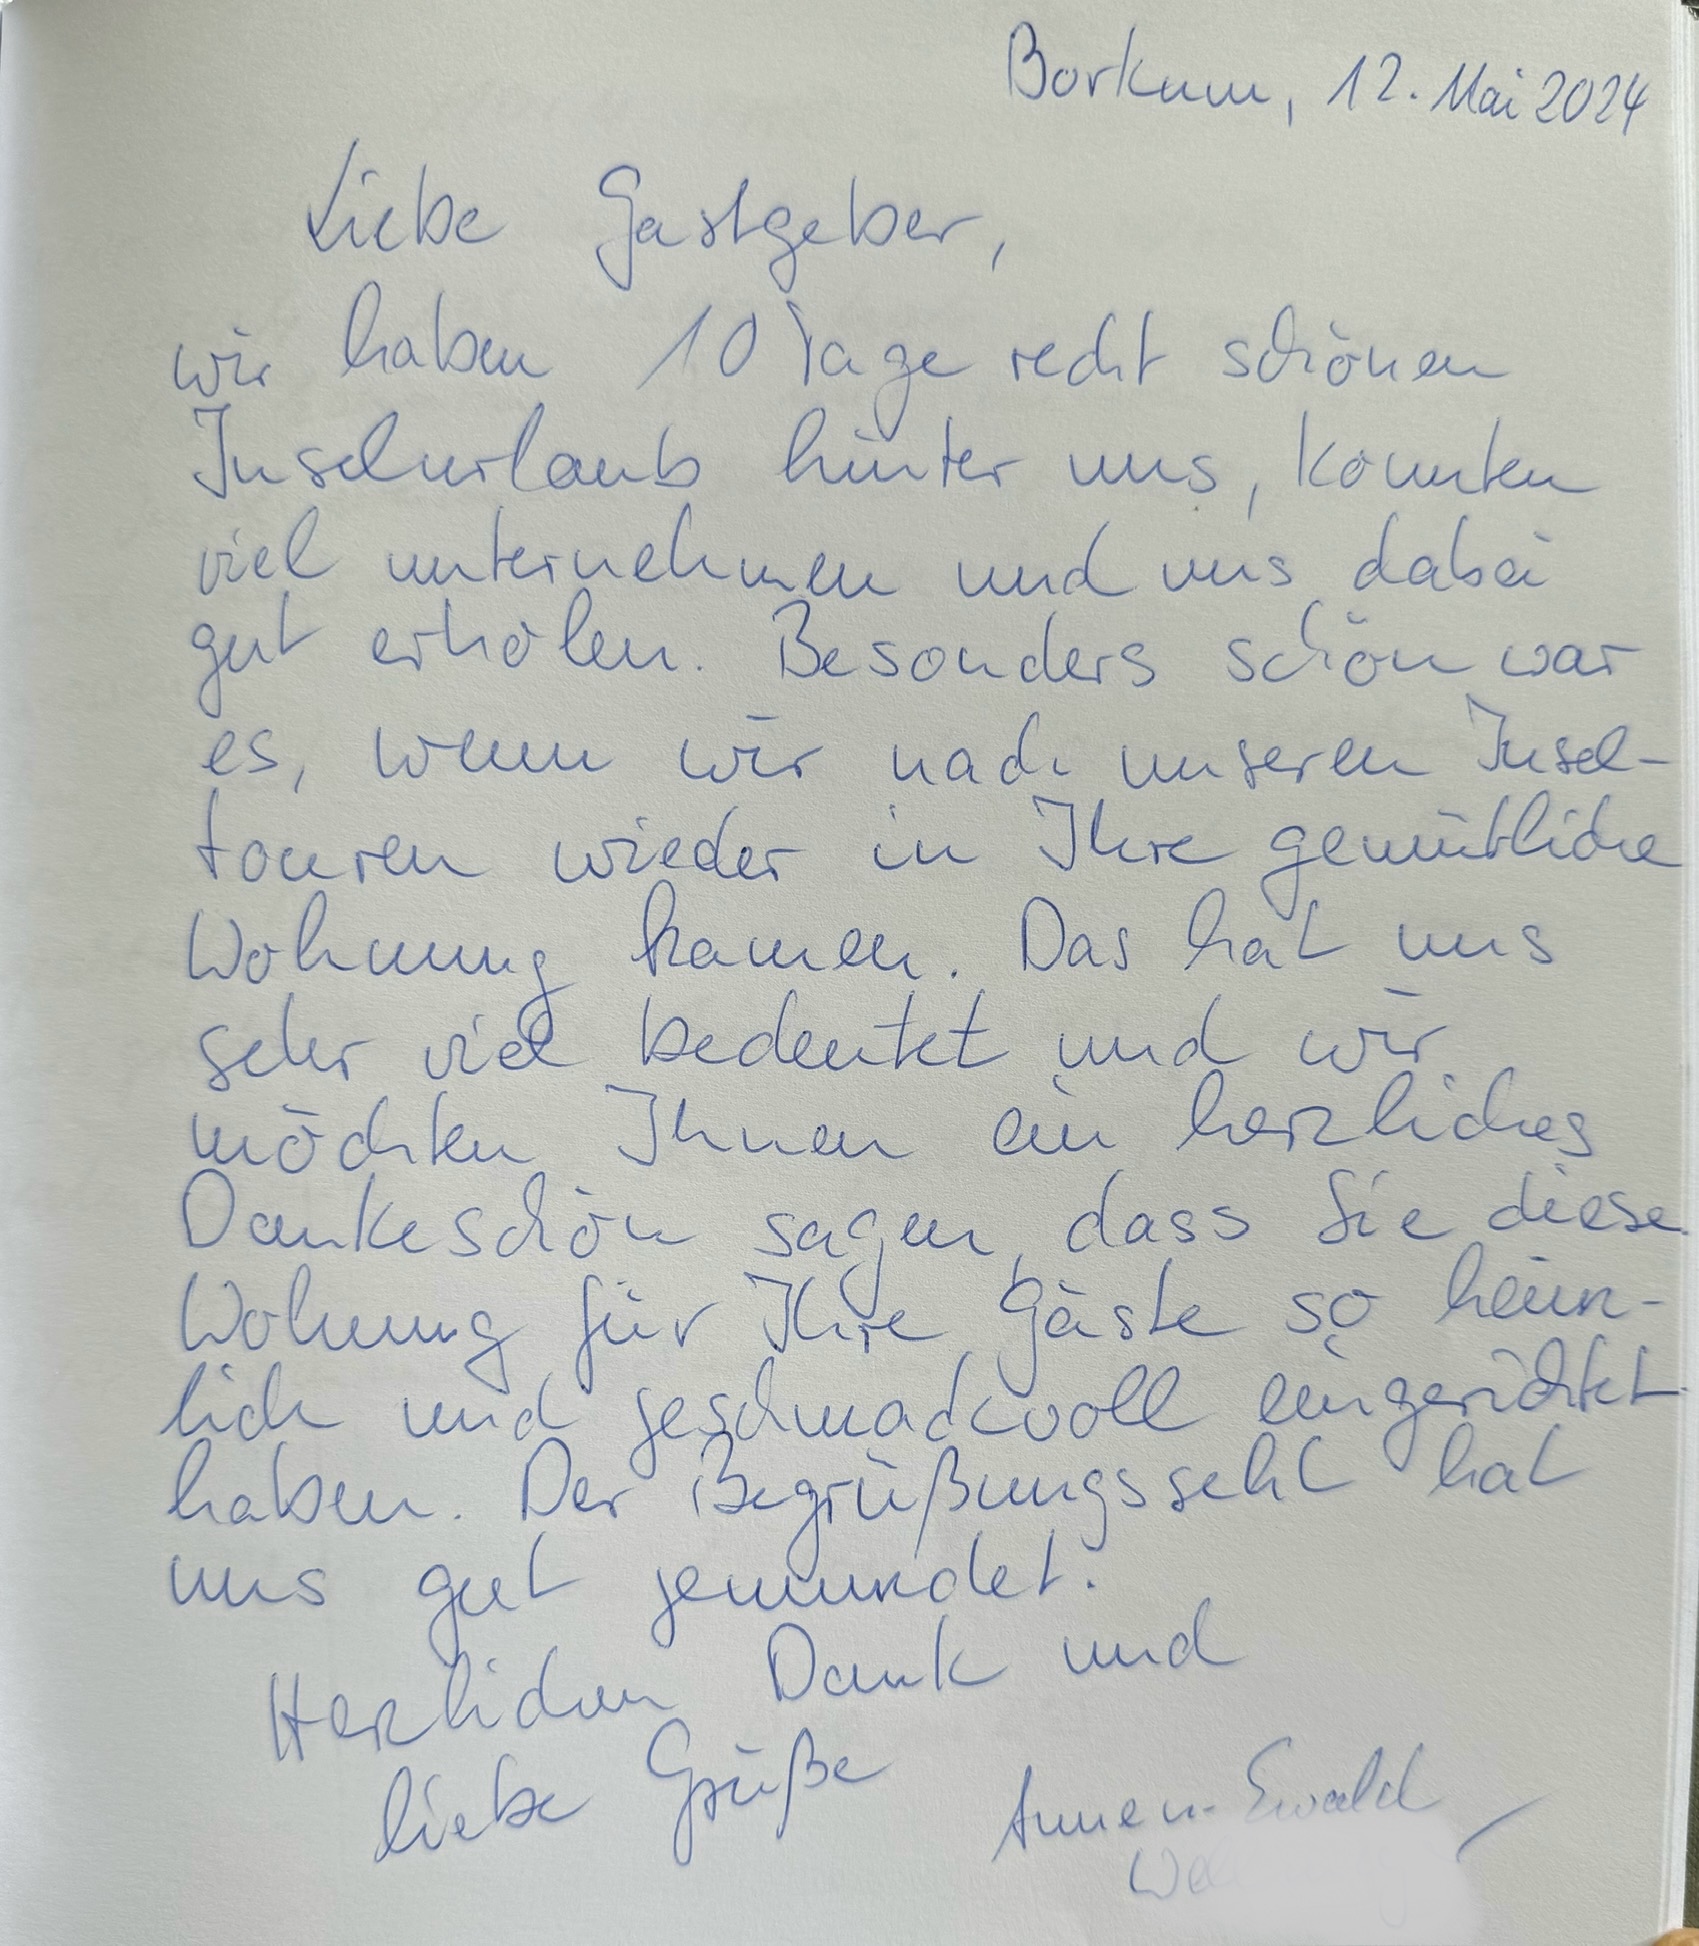 Borkum, 12. Mai 2024
Liebe Gastgeber,
wir haben 10 Tage recht schönen
Inselurlaub hinter uns, konnten
viel unternehmen und uns dabei
gut erholen. Besonders schön war
es, wenn wir nach unseren Insel-
touren wieder in Ihre gemütliche
Wohnung kamen. Das hat uns
sehr viel bedeutet und wir
möchten Ihnen ein herzliches
Dankeschön sagen, dass Sie diese
Wohnung für Ihre Gäste so heim-
lich und geschmackvoll eingerichtet
haben. Der Begrüßungssekt hat
uns gut gemundet.
Herzlichen Dank und
liebe Grüße
Anne u. Ewald